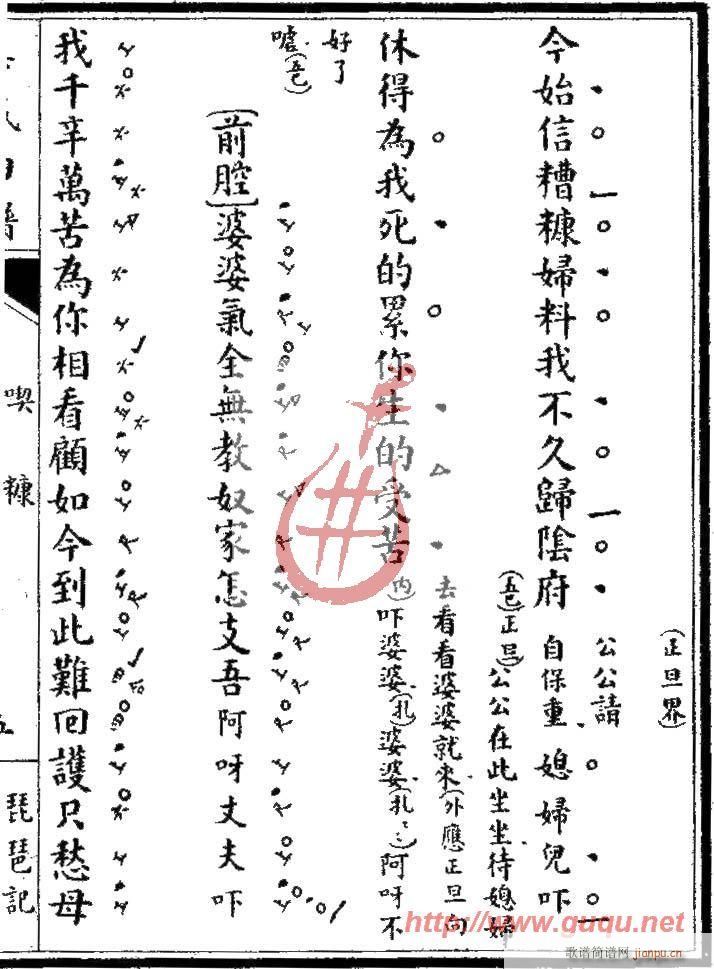 (正旦界)
公公請
今始信糟糠婦料我不久歸陰府 自保重 媳婦兒吓
公公在此坐坐待媳婦
去看看婆婆就來(外應正旦向
休得為我死的累你生的受苦 內)吓婆婆(扎)婆婆(扎〻三)阿呀不
好了
噓
[前腔]婆婆氣全無教奴家怎支吾阿呀丈夫吓
我千辛萬苦為你相看顧如今到此難回護只愁母
喫糠
琵琶記
http://www.guqu.net
歌谱简谱网 jianpu.cn